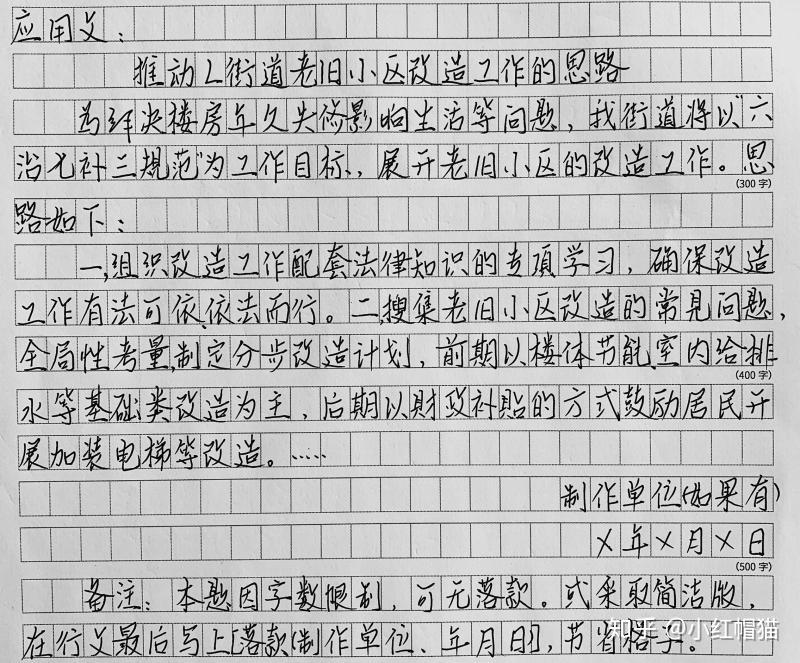 应用文：
推动L街道老旧小区改造工作的思路
为解决楼房年久失修影响生活等问题，我街道将以“六
治七补三规范”为工作目标，展开老旧小区的改造工作。思
(300字)
路如下：
一、组织改造工作配套法律知识的专项学习，确保改造
工作有法可依、依法而行。二、搜集老旧小区改造的常见问题，
全局性考量，制定分步改造计划，前期以楼体节能、室内给排
(400字)
水等基础类改造为主，后期以财政补贴的方式鼓励居民开
展加装电梯等改造。……
制作单位(如果有)
X年X月X日
(500字)
备注：本题因字数限制，可无落款。或采取简洁版，
在行文最后写上[落款(制作单位、年月日)]，节省格子。
知乎 @小红帽猫